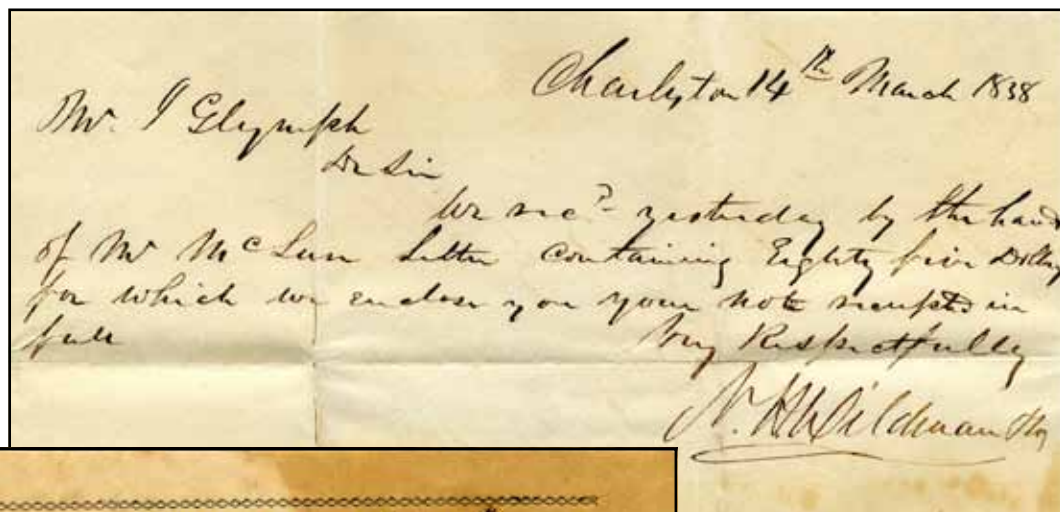 Charleston 14th March 1838
Mr. I Glymph
Dr Sir
We recd yesterday by the hand
of Mr McLure Letter containing Eighty five Dolls
for which we enclose you your note receipted in
full Very Respectfully
N. H. Wildman